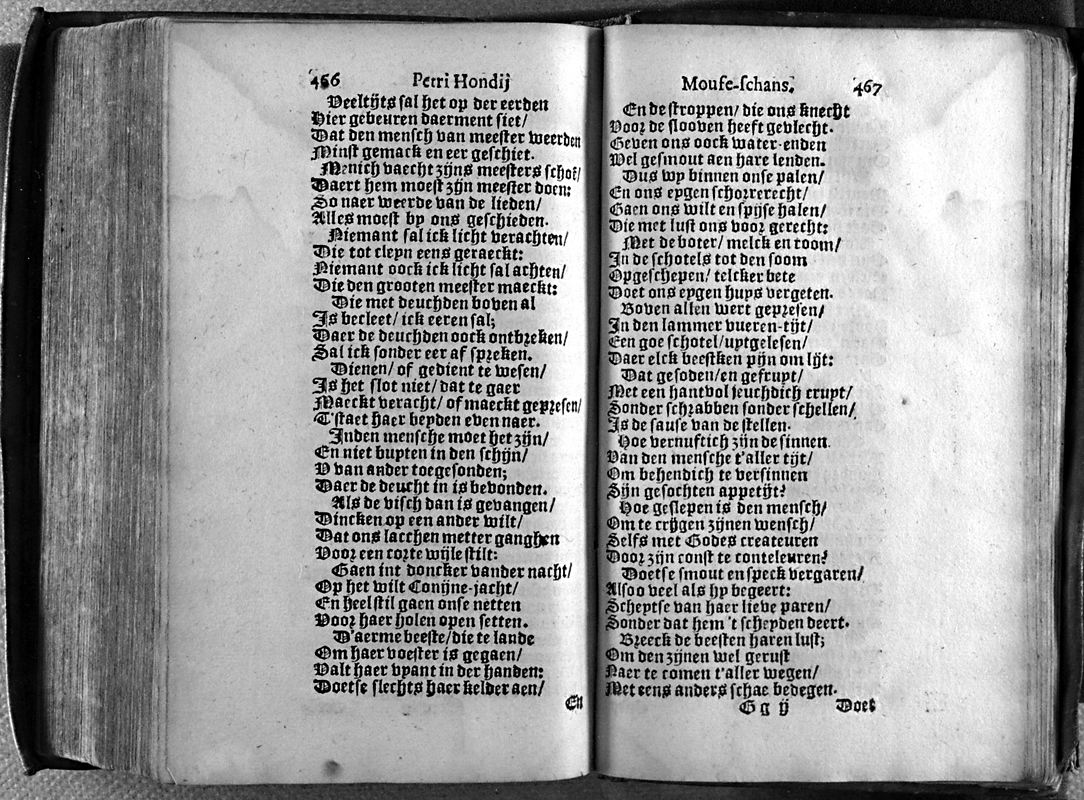 466 Petri Hondij
Veeltijts sal het op der eerden
Hier gebeuren daerment siet/
Dat den mensch van meester weerden
Minst gemack en eer geschiet.
Menich vaecht zijns meesters schoe/
Daert hem moest zijn meester doen:
So naer weerde van de lieden/
Alles moest by ons geschieden.
Niemant sal ick licht verachten/
Die tot cleyn eens geraeckt:
Niemant oock ick licht sal achten/
Die den grooten meester maeckt:
Die met deuchden boven al
Is becleet/ ick eeren sal;
Daer de deuchden oock ontbreken/
Sal ick sonder eer af spreken.
Dienen/ of gedient te wesen/
Is het slot niet/ dat te gaer
Maeckt veracht/ of maeckt gepresen/
T'staet haer beyden even naer.
Inden mensche moet het zijn/
En niet buyten in den schijn/
V van ander toegesonden;
Daer de deucht in is bevonden.
Als de visch dan is gevangen/
Dincken op een ander wilt/
Dat ons lacchen metter ganghen
Voor een corte wijle stilt:
Gaen int doncker vander nacht/
Op het wilt Conijne-jacht/
En heel stil gaen onse netten
Voor haer holen open setten.
D'aerme beeste/ die te lande
Om haer voester is gegaen/
Valt haer vyant in der handen:
Doetse slechts haer kelder aen/
En
Mouse-schans. 467
En de stroppen/ die ons knecht
Voor de slooven heeft gevlecht.
Geven ons oock water-enden
Wel gesmout aen hare lenden.
Dus wy binnen onse palen/
En ons eygen schorrerecht/
Gaen ons wilt en spijse halen/
Die met lust ons voor gerecht:
Met de boter/ melck en room/
In de schotels tot den soom
Opgeschepen/ telcker bete
Doet ons eygen huys vergeten.
Boven allen wert gepresen/
In den lammer vueren-tijt/
Een goe schotel/ uytgelesen/
Daer elck beestken pijn om lijt:
Dat gesoden/ en gefruyt/
Met een hantvol jeuchdich cruyt/
Sonder schrabben sonder schellen/
Is de sause van de stellen.
Hoe vernuftich zijn de sinnen
Van den mensche t'aller tijt/
Om behendich te versinnen
Sijn gesochten appetijt?
Hoe geslepen is den mensch/
Om te crijgen zijnen wensch/
Selfs met Godes createuren
Door zijn const te conteleuren?
Doetse smout en speck vergaren/
Alsoo veel als hy begeert:
Scheptse van haer lieve paren/
Sonder dat hem 't scheyden deert.
Breeck de beesten haren lust;
Om den zijnen wel gerust
Naer te comen t'aller wegen/
Met eens anders schae bedegen.
G g ij Doet